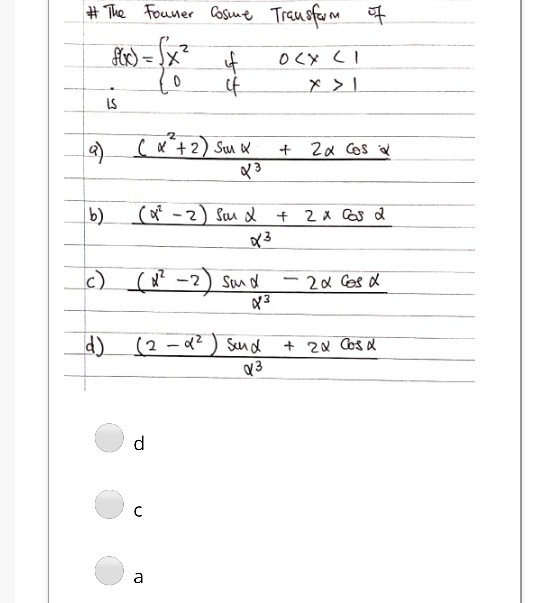 # The Fourier Cosine Transform of
f(x) = { x² if 0 < x < 1
{ 0 if x > 1
is
a) (α² + 2) Sin α + 2α Cos α
α³
b) (α² - 2) Sin α + 2α Cos α
α³
c) (α² - 2) Sin α - 2α Cos α
α³
d) (2 - α²) Sin α + 2α Cos α
α³
d
c
a